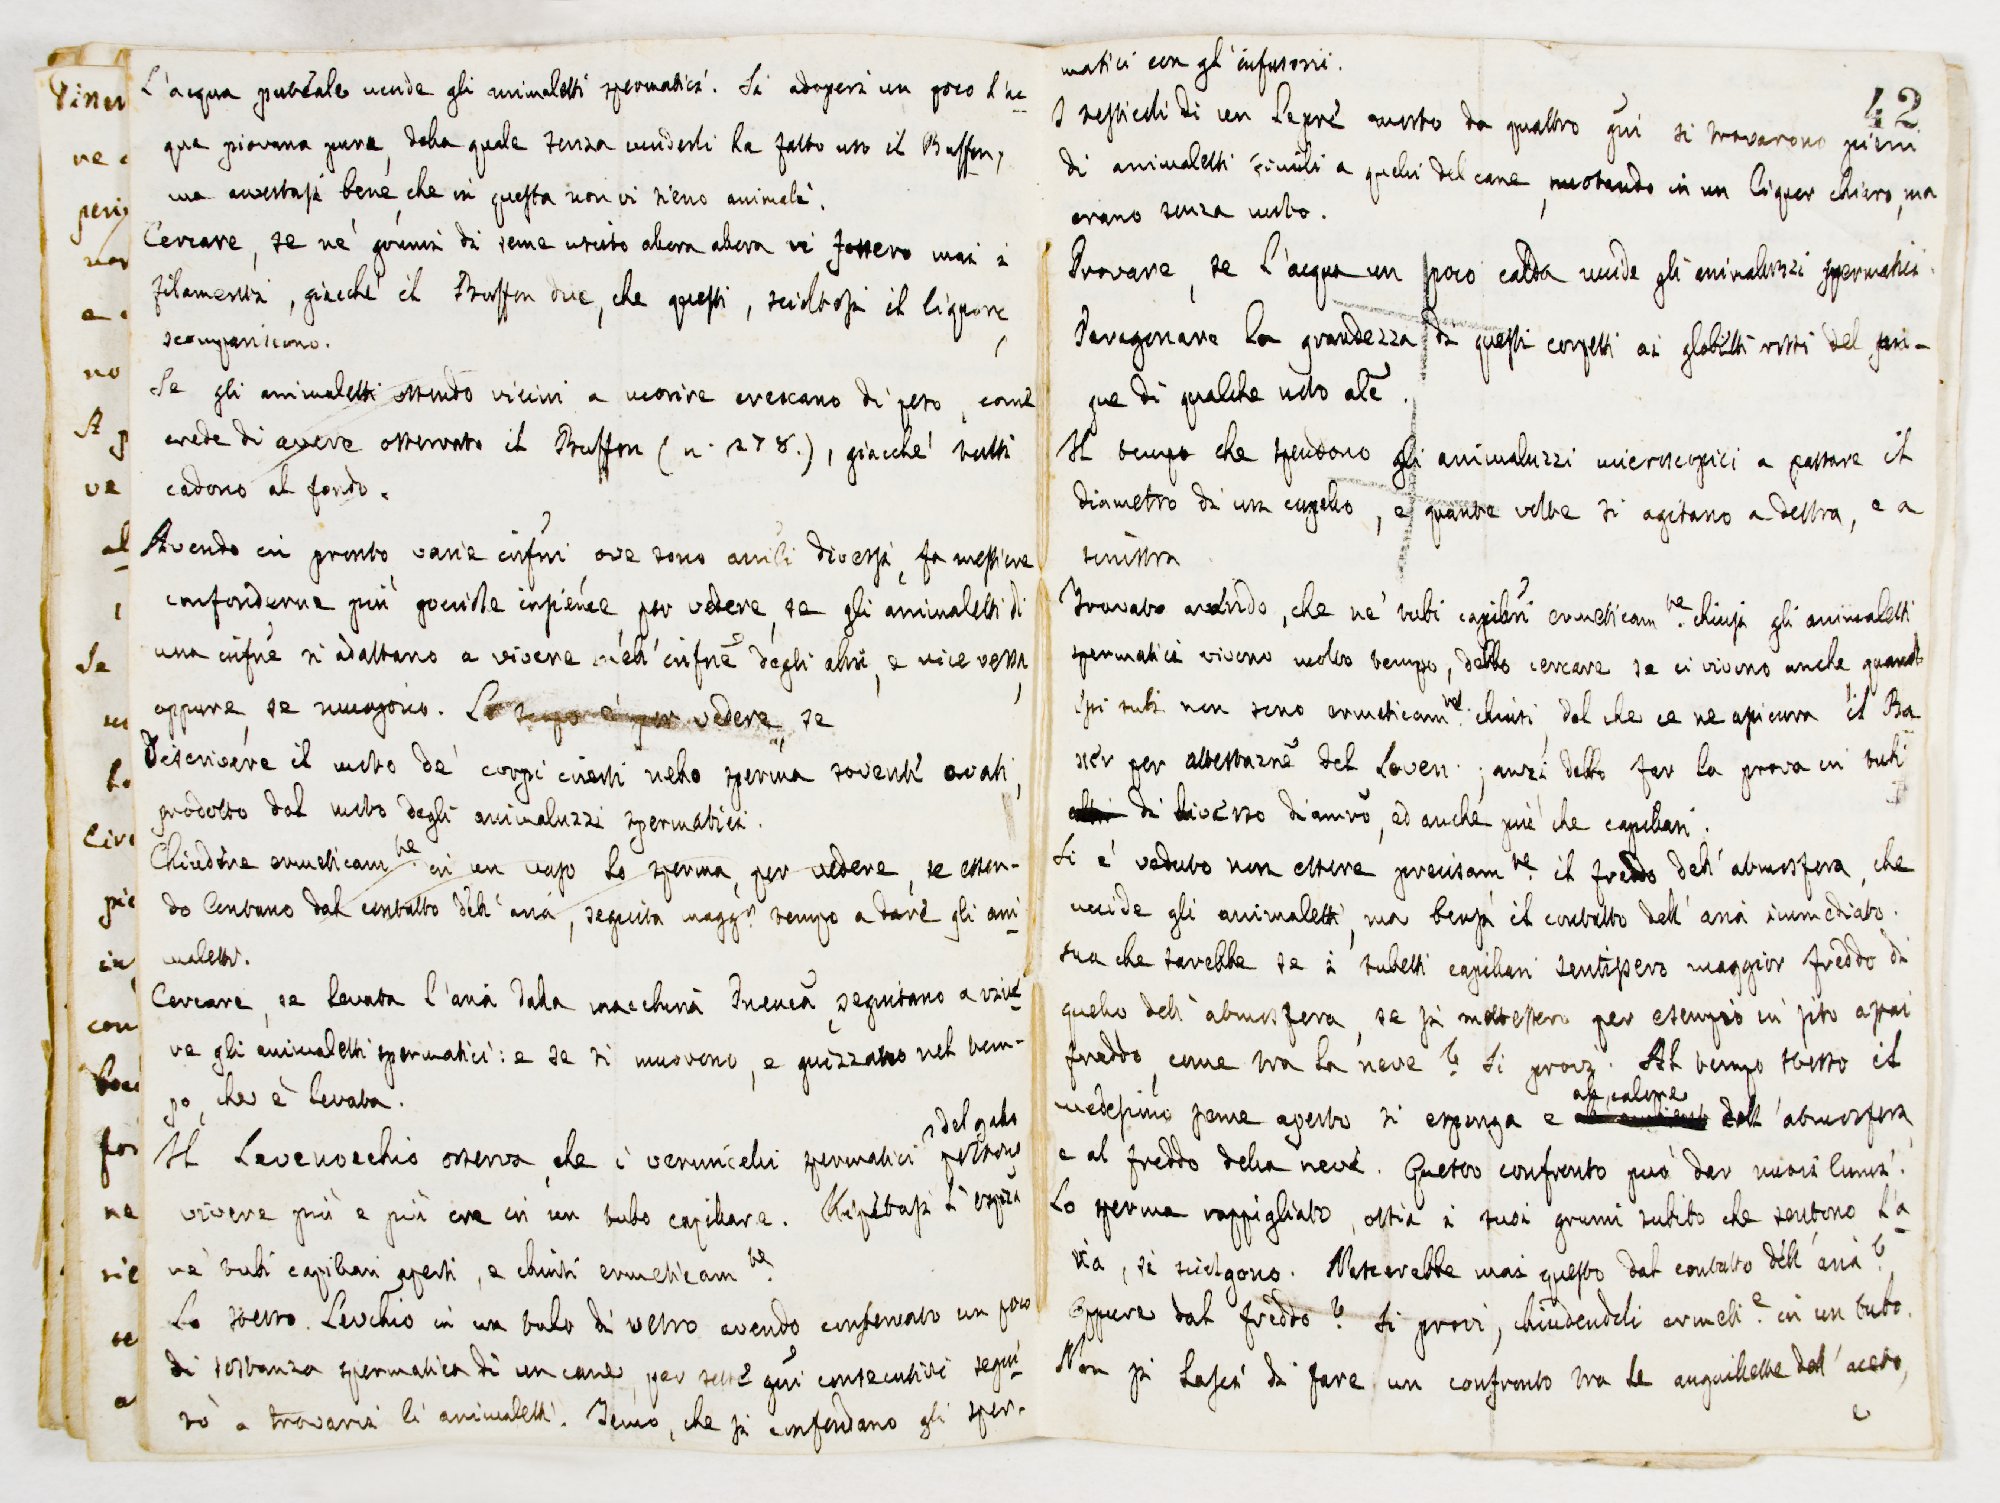 L'acqua puteale uccide gli animaletti spermatici. Si adoperi un poco l'ac
qua piovana pura, della quale senza ucciderli ha fatto uso il Buffon,
ma avvertasi bene, che in questa non vi sieno animali.
Cercare, se ne' grumi di seme uscito allora allora vi fossero mai i
filamenti, giacché il Buffon dice, che questi, scioltosi il liquore,
scompariscono.
Se gli animaletti essendo vicini a morire crescano di peso, come
crede di avere osservato il Buffon (n. 278.), giacché tutti
cadono al fondo.
Avendo in pronto varie infuni ove sono anili diversi, fa mestiere
confonderne più gocciole insieme per vedere, se gli animaletti di
una infune si adattano a vivere nell'infune degli altri, e vice versa,
oppure, se muojono. Lo scopo è per vedere, se
Descrivere il moto de' corpi inerti nello sperma sovente ovati,
prodotto dal moto degli animaluzzi spermatici.
Chiudere ermeticamte in un vaso lo sperma, per vedere, se essen-
do lontano dal contatto dell'aria, seguita maggr tempo a dare gli ani
maletti.
Cercare, se levata l'aria dalla macchina Pneuca seguitano a vive
re gli animaletti spermatici: e se si muovono, e guizzano nel tem-
po, che è levata.
del gallo
Il Levenoechio osserva, che i vermicelli spermatici possono
vivere più e più ore in un tubo capillare. Ripetasi l'espza
ne' tubi capillari aperti, e chiusi ermeticamte.
Lo stesso Levchio in un tubo di vetro avendo conservato un poco
di sostanza spermatica di un cane, per sette gni consecutivi segui
tò a trovarvi li animaletti. Temo, che si confondano gli sper-
42
matici con gl'infusorii.
I testicoli di un Lepre morto da quattro gni si trovarono pieni
di animaletti simili a quelli del cane, nuotando in un liquor chiaro, ma
erano senza moto.
Provare, se l'acqua un poco calda uccide gli animaluzzi spermatici.
Paragonare la grandezza di questi corpetti ai globetti rossi del san-
gue di qualche noto ale.
Il tempo che spendono gli animaluzzi microscopici a passare il
diametro di un capello, e quante volte si agitano a destra, e a
sinistra
Trovato avendo, che ne' tubi capillari ermeticamte chiusi gli animaletti
spermatici vivono molto tempo, debbo cercare se ci vivono anche quando
essi tubi non sono ermeticamte chiusi, dal che ce ne assicura il Ba
ker per attestazne del Leven.; anzi debbo far la prova in tubi
di diverso diamro, ed anche più che capillari.
Si è veduto non essere precisamte il freddo dell'atmosfera, che
uccide gli animaletti, ma bensì il contatto dell'aria immediato.
Ma che sarebbe se i tubetti capillari sentissero maggior freddo di
quello dell'atmosfera, se si mettessero per esempio in sito assai
freddo, come tra la neve? Si provi. Al tempo stesso il
al calore
medesimo seme aperto si esponga e dell'atmosfera
e al freddo della neve. Questo confronto può dar nuovi lumi.
Lo sperma rappigliato, ossia i suoi grumi subito che sentono l'a
ria, si sciolgono. Nascerebbe mai questo dal contatto dell'aria?
Oppure dal freddo? Si provi, chiudendoli ermete. in un tubo.
Non si lasci di fare un confronto tra le anguillette dell'aceto,
e